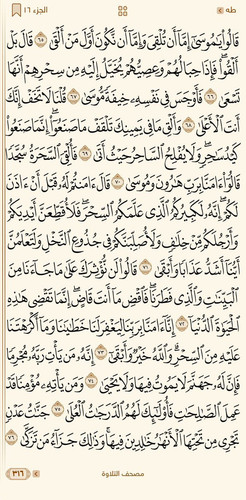 طه
الجزء ١٦
قَالُوا۟ يَٰمُوسَىٰٓ إِمَّآ أَن تُلْقِىَ وَإِمَّآ أَن نَّكُونَ أَوَّلَ مَنْ أَلْقَىٰ ٦٥ قَالَ بَلْ
أَلْقُوا۟ فَإِذَا حِبَالُهُمْ وَعِصِيُّهُمْ يُخَيَّلُ إِلَيْهِ مِن سِحْرِهِمْ أَنَّهَا
تَسْعَىٰ ٦٦ فَأَوْجَسَ فِى نَفْسِهِۦ خِيفَةً مُّوسَىٰ ٦٧ قُلْنَا لَا تَخَفْ إِنَّكَ
أَنتَ ٱلْأَعْلَىٰ ٦٨ وَأَلْقِ مَا فِى يَمِينِكَ تَلْقَفْ مَا صَنَعُوٓا۟ إِنَّمَا صَنَعُوا۟
كَيْدُ سَٰحِرٍ وَلَا يُفْلِحُ ٱلسَّاحِرُ حَيْثُ أَتَىٰ ٦٩ فَأُلْقِىَ ٱلسَّحَرَةُ سُجَّدًا
قَالُوٓا۟ ءَامَنَّا بِرَبِّ هَٰرُونَ وَمُوسَىٰ ٧٠ قَالَ ءَامَنتُمْ لَهُۥ قَبْلَ أَنْ ءَاذَنَ
لَكُمْ إِنَّهُۥ لَكَبِيرُكُمُ ٱلَّذِى عَلَّمَكُمُ ٱلسِّحْرَ فَلَأُقَطِّعَنَّ أَيْدِيَكُمْ
وَأَرْجُلَكُم مِّنْ خِلَٰفٍ وَلَأُصَلِّبَنَّكُمْ فِى جُذُوعِ ٱلنَّخْلِ وَلَتَعْلَمُنَّ
أَيُّنَآ أَشَدُّ عَذَابًا وَأَبْقَىٰ ٧١ قَالُوا۟ لَن نُّؤْثِرَكَ عَلَىٰ مَا جَآءَنَا مِنَ
ٱلْبَيِّنَٰتِ وَٱلَّذِى فَطَرَنَا فَٱقْضِ مَآ أَنتَ قَاضٍ إِنَّمَا تَقْضِى هَٰذِهِ
ٱلْحَيَوٰةَ ٱلدُّنْيَآ ٧٢ إِنَّآ ءَامَنَّا بِرَبِّنَا لِيَغْفِرَ لَنَا خَطَٰيَٰنَا وَمَآ أَكْرَهْتَنَا
عَلَيْهِ مِنَ ٱلسِّحْرِ وَٱللَّهُ خَيْرٌ وَأَبْقَىٰٓ ٧٣ إِنَّهُۥ مَن يَأْتِ رَبَّهُۥ مُجْرِمًا
فَإِنَّ لَهُۥ جَهَنَّمَ لَا يَمُوتُ فِيهَا وَلَا يَحْيَىٰ ٧٤ وَمَن يَأْتِهِۦ مُؤْمِنًا قَدْ
عَمِلَ ٱلصَّٰلِحَٰتِ فَأُو۟لَٰٓئِكَ لَهُمُ ٱلدَّرَجَٰتُ ٱلْعُلَىٰ ٧٥ جَنَّٰتُ عَدْنٍ
تَجْرِى مِن تَحْتِهَا ٱلْأَنْهَٰرُ خَٰلِدِينَ فِيهَا وَذَٰلِكَ جَزَآءُ مَن تَزَكَّىٰ ٧٦
مصحف التلاوة
٣١٦